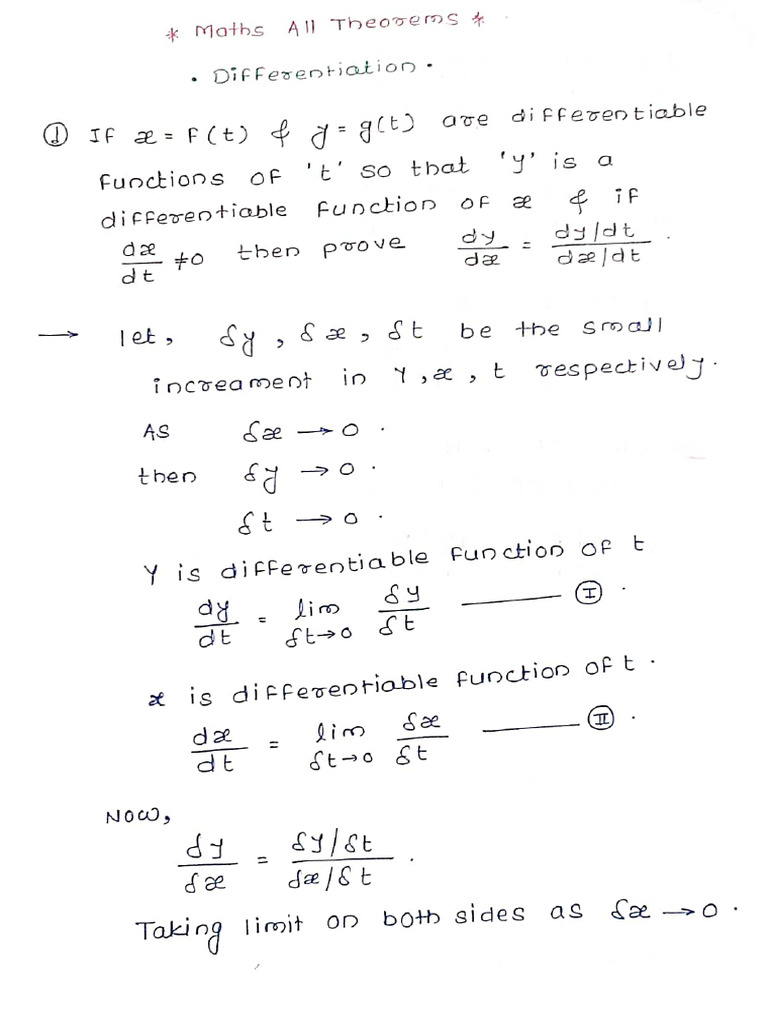 * Maths All Theorems *
• Differentiation •
① If x = f(t) & y = g(t) are differentiable
functions of 't' so that 'y' is a
differentiable function of x & if
dx/dt ≠0 then prove dy/dx = (dy/dt)/(dx/dt) .
→ let, δy, δx, δt be the small
increament in Y, x, t respectively.
As δx → 0 .
then δy → 0 .
δt → 0 .
Y is differentiable function of t
dy/dt = lim δt→0 δy/δt —— Ⓘ .
x is differentiable function of t .
dx/dt = lim δt→0 δx/δt —— ⓘⓘ .
Now,
δy/δx = (δy/δt)/(δx/δt) .
Taking limit on both sides as δx → 0 .